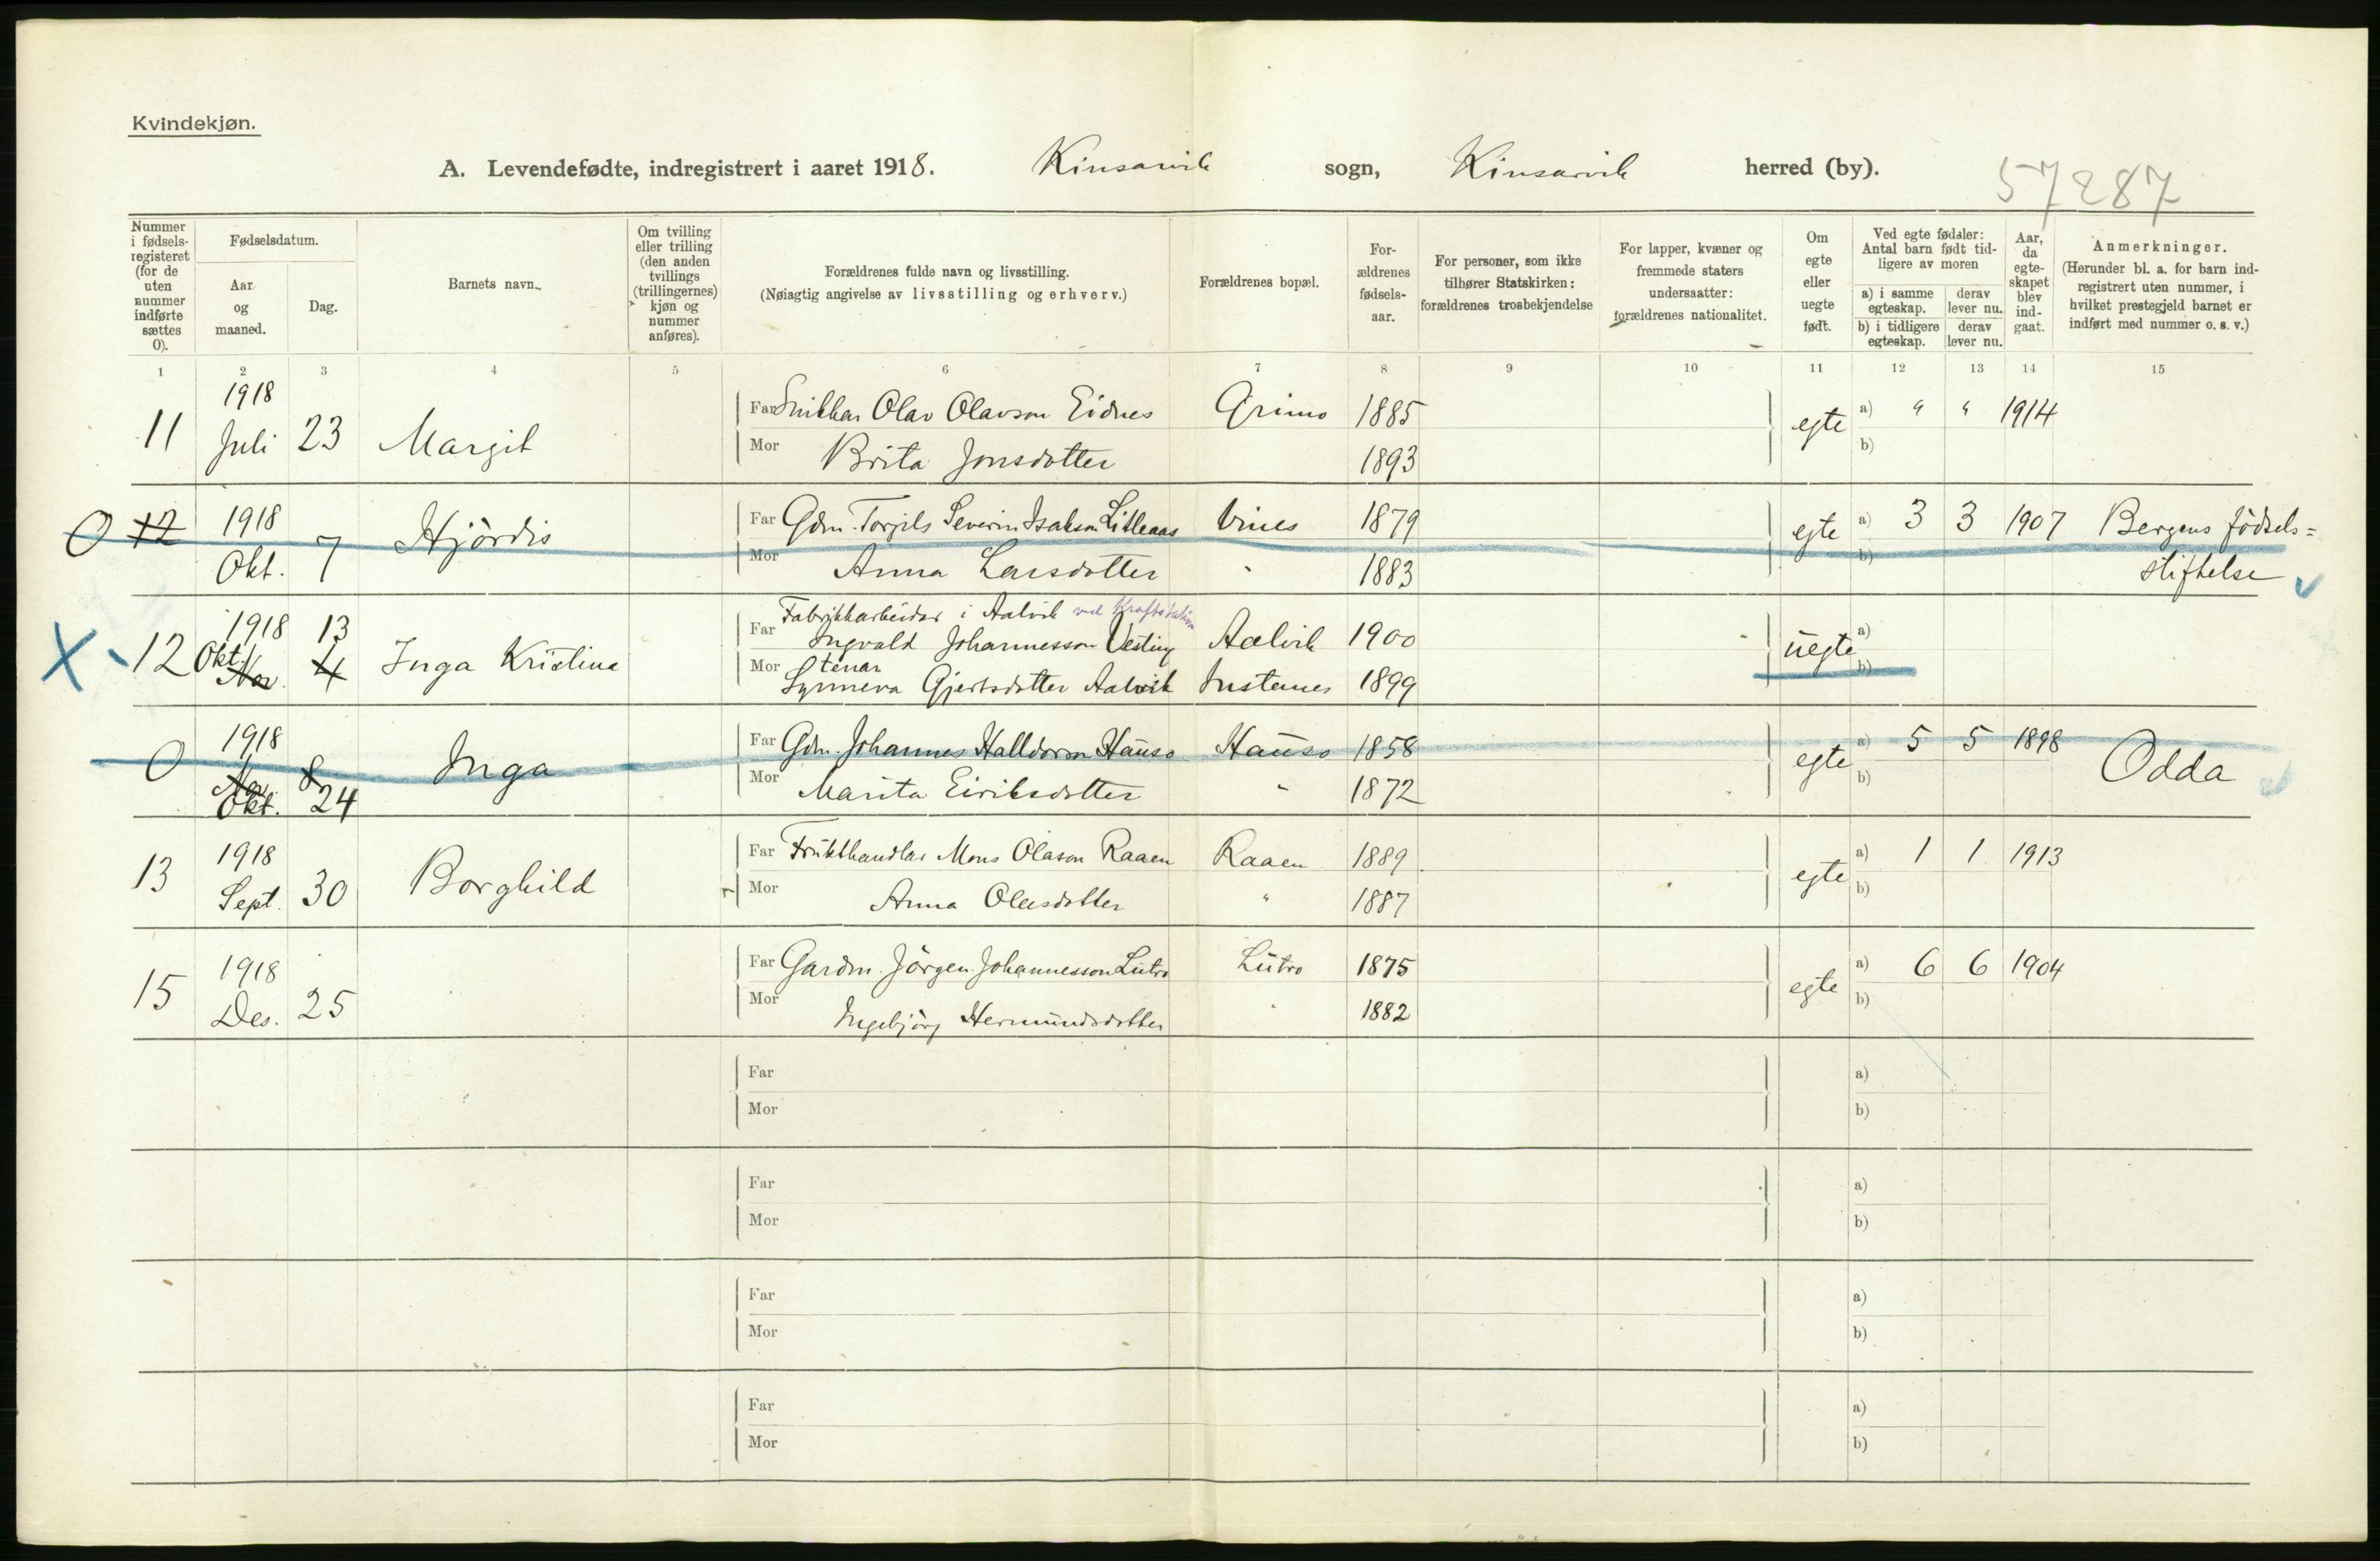 Kvindekjøn.
A. Levendefødte, indregistrert i aaret 1918. Kinsarvik sogn, Kinsarvik herred (by).
57287
Nummer i fødselsregisteret (for de uten nummer indførte sættes 0).
Fødselsdatum.
Aar og maaned.
Dag.
Barnets navn.
Om tvilling eller trilling (den anden tvillings (trillingernes) kjøn og nummer anføres).
Forældrenes fulde navn og livsstilling.
(Nøiagtig angivelse av livsstilling og erhverv.)
Forældrenes bopæl.
Forældrenes fødselsaar.
For personer, som ikke tilhører Statskirken: forældrenes trosbekjendelse
For lapper, kvæner og fremmede staters undersaatter: forældrenes nationalitet.
Om egte eller uegte født.
Ved egte fødsler: Antal barn født tidligere av moren
a) i samme egteskap. derav lever nu.
b) i tidligere egteskap. derav lever nu.
Aar, da egteskapet blev indgaat.
Anmerkninger.
(Herunder bl. a. for barn indregistrert uten nummer, i hvilket prestegjeld barnet er indført med nummer o. s. v.)
1 2 3 4 5 6 7 8 9 10 11 12 13 14 15
11 1918 Juli 23 Margit
Far Snikkar Olav Olavson Eidnes Grimo 1885 egte a) " " 1914
Mor Brita Jonsdotter 1893 b)
0 12 1918 Okt. 7 Hjördis
Far Gdm. Torjils Severin Isakson Litleaas Vines 1879 egte a) 3 3 1907 Bergens födsels=
Mor Anna Larsdotter " 1883 b) stiftelse
X 12 1918 Okt. Nov. 13 4 Inga Kristina
Fabrikkarbeidar i Aalvik ved Kraftstation
Far Ingvald Johannesson Aalvik 1900 uegte a)
tenar
Mor Synneva Gjertsdotter Aalvik 1899 b)
0 1918 Nov. Okt. 8 24 Inga
Far Gdm. Johannes Halldorson Hauso Hauso 1858 egte a) 5 5 1898 Odda
Mor Marita Eiriksdotter " 1872 b)
13 1918 Sept. 30 Borghild
Far Frukthandlar Mons Olason Raaen Raaen 1889 egte a) 1 1 1913
Mor Anna Olasdotter " 1887 b)
15 1918 Des. 25
Far Gardm. Jörgen Johannesson Lutro Lutro 1875 egte a) 6 6 1904
Mor Ingebjörg Hermundsdotter " 1882 b)
Far a)
Mor b)
Far a)
Mor b)
Far a)
Mor b)
Far a)
Mor b)